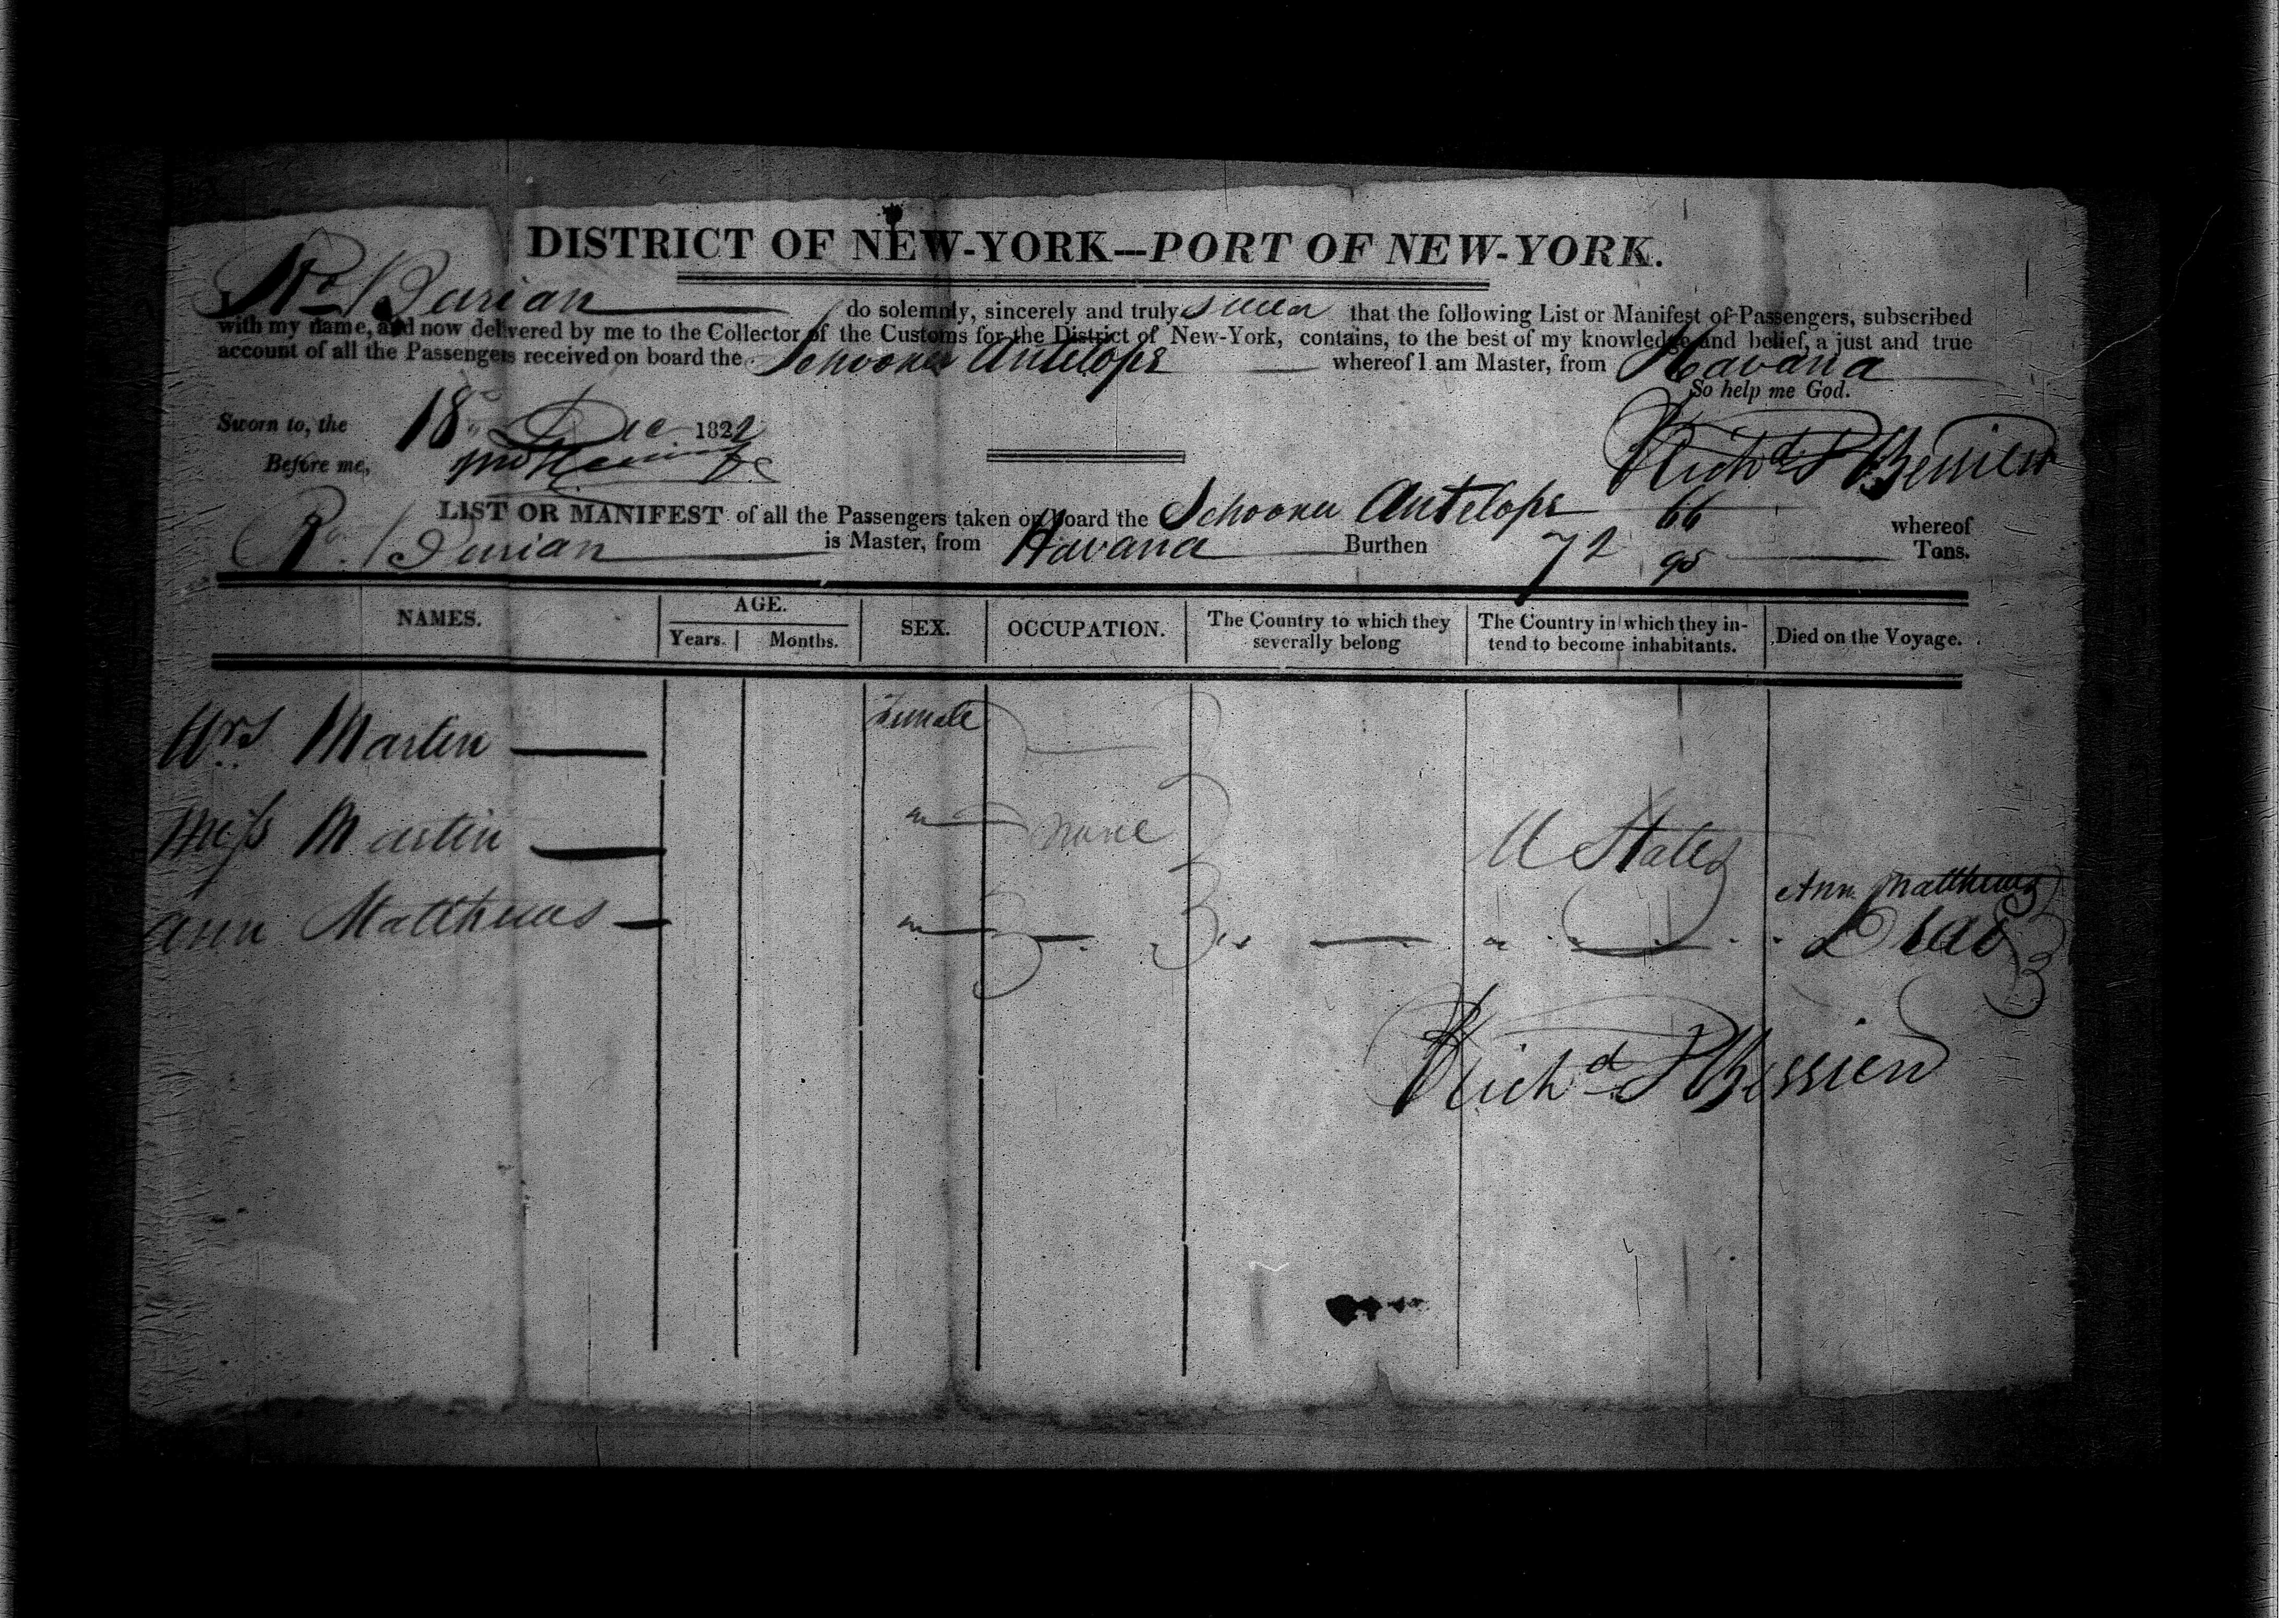 DISTRICT OF NEW-YORK--PORT OF NEW-YORK.
Rd Burian do solemnly, sincerely and truly swear that the following List or Manifest of Passengers, subscribed
with my name, and now delivered by me to the Collector of the Customs for the District of New-York, contains, to the best of my knowledge and belief, a just and true
account of all the Passengers received on board the Schooner Antelope whereof I am Master, from Havana
So help me God.
Sworn to, the 18 Dec 1822
Before me,
Richd P Bessien
LIST OR MANIFEST of all the Passengers taken on board the Schooner Antelope whereof
Rd. Burian is Master, from Havana Burthen 72 66/95 Tons.
NAMES. AGE. Years. Months. SEX. OCCUPATION. The Country to which they severally belong The Country in which they intend to become inhabitants. Died on the Voyage.
Mrs Martin Female
Miss Martin " none U States
Ann Matthews " Ann Matthews
Dead
Richd P Bessien